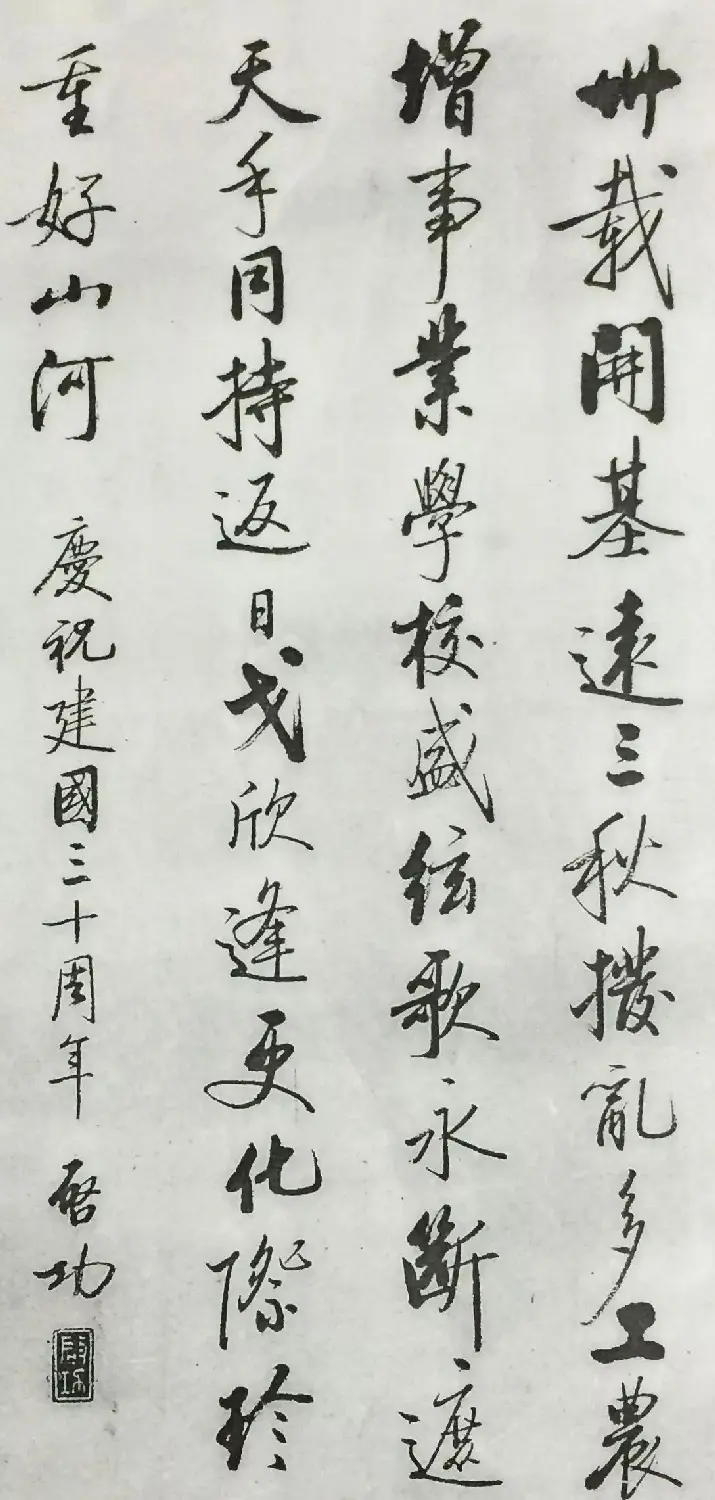 卅載開基遠三秋撥亂多工農
增事業學校盛絃歌永斷遮
天手同持返日戈欣逢更化際珍
重好山河 慶祝建國三十周年 啓功